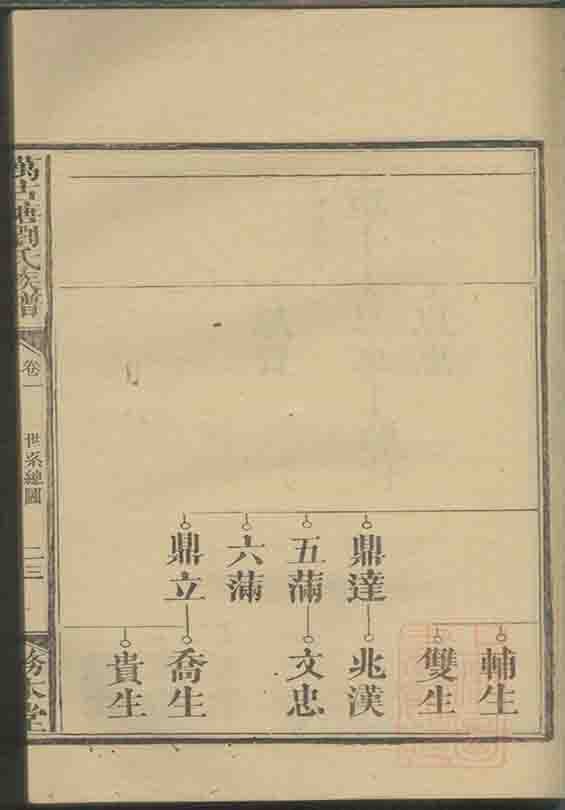 鼎達
五滿
六滿
鼎立
輔生
雙生
兆漢
文忠
喬生
貴生
萬古塘劉氏族譜
卷一
世系總圖
二三
務本堂